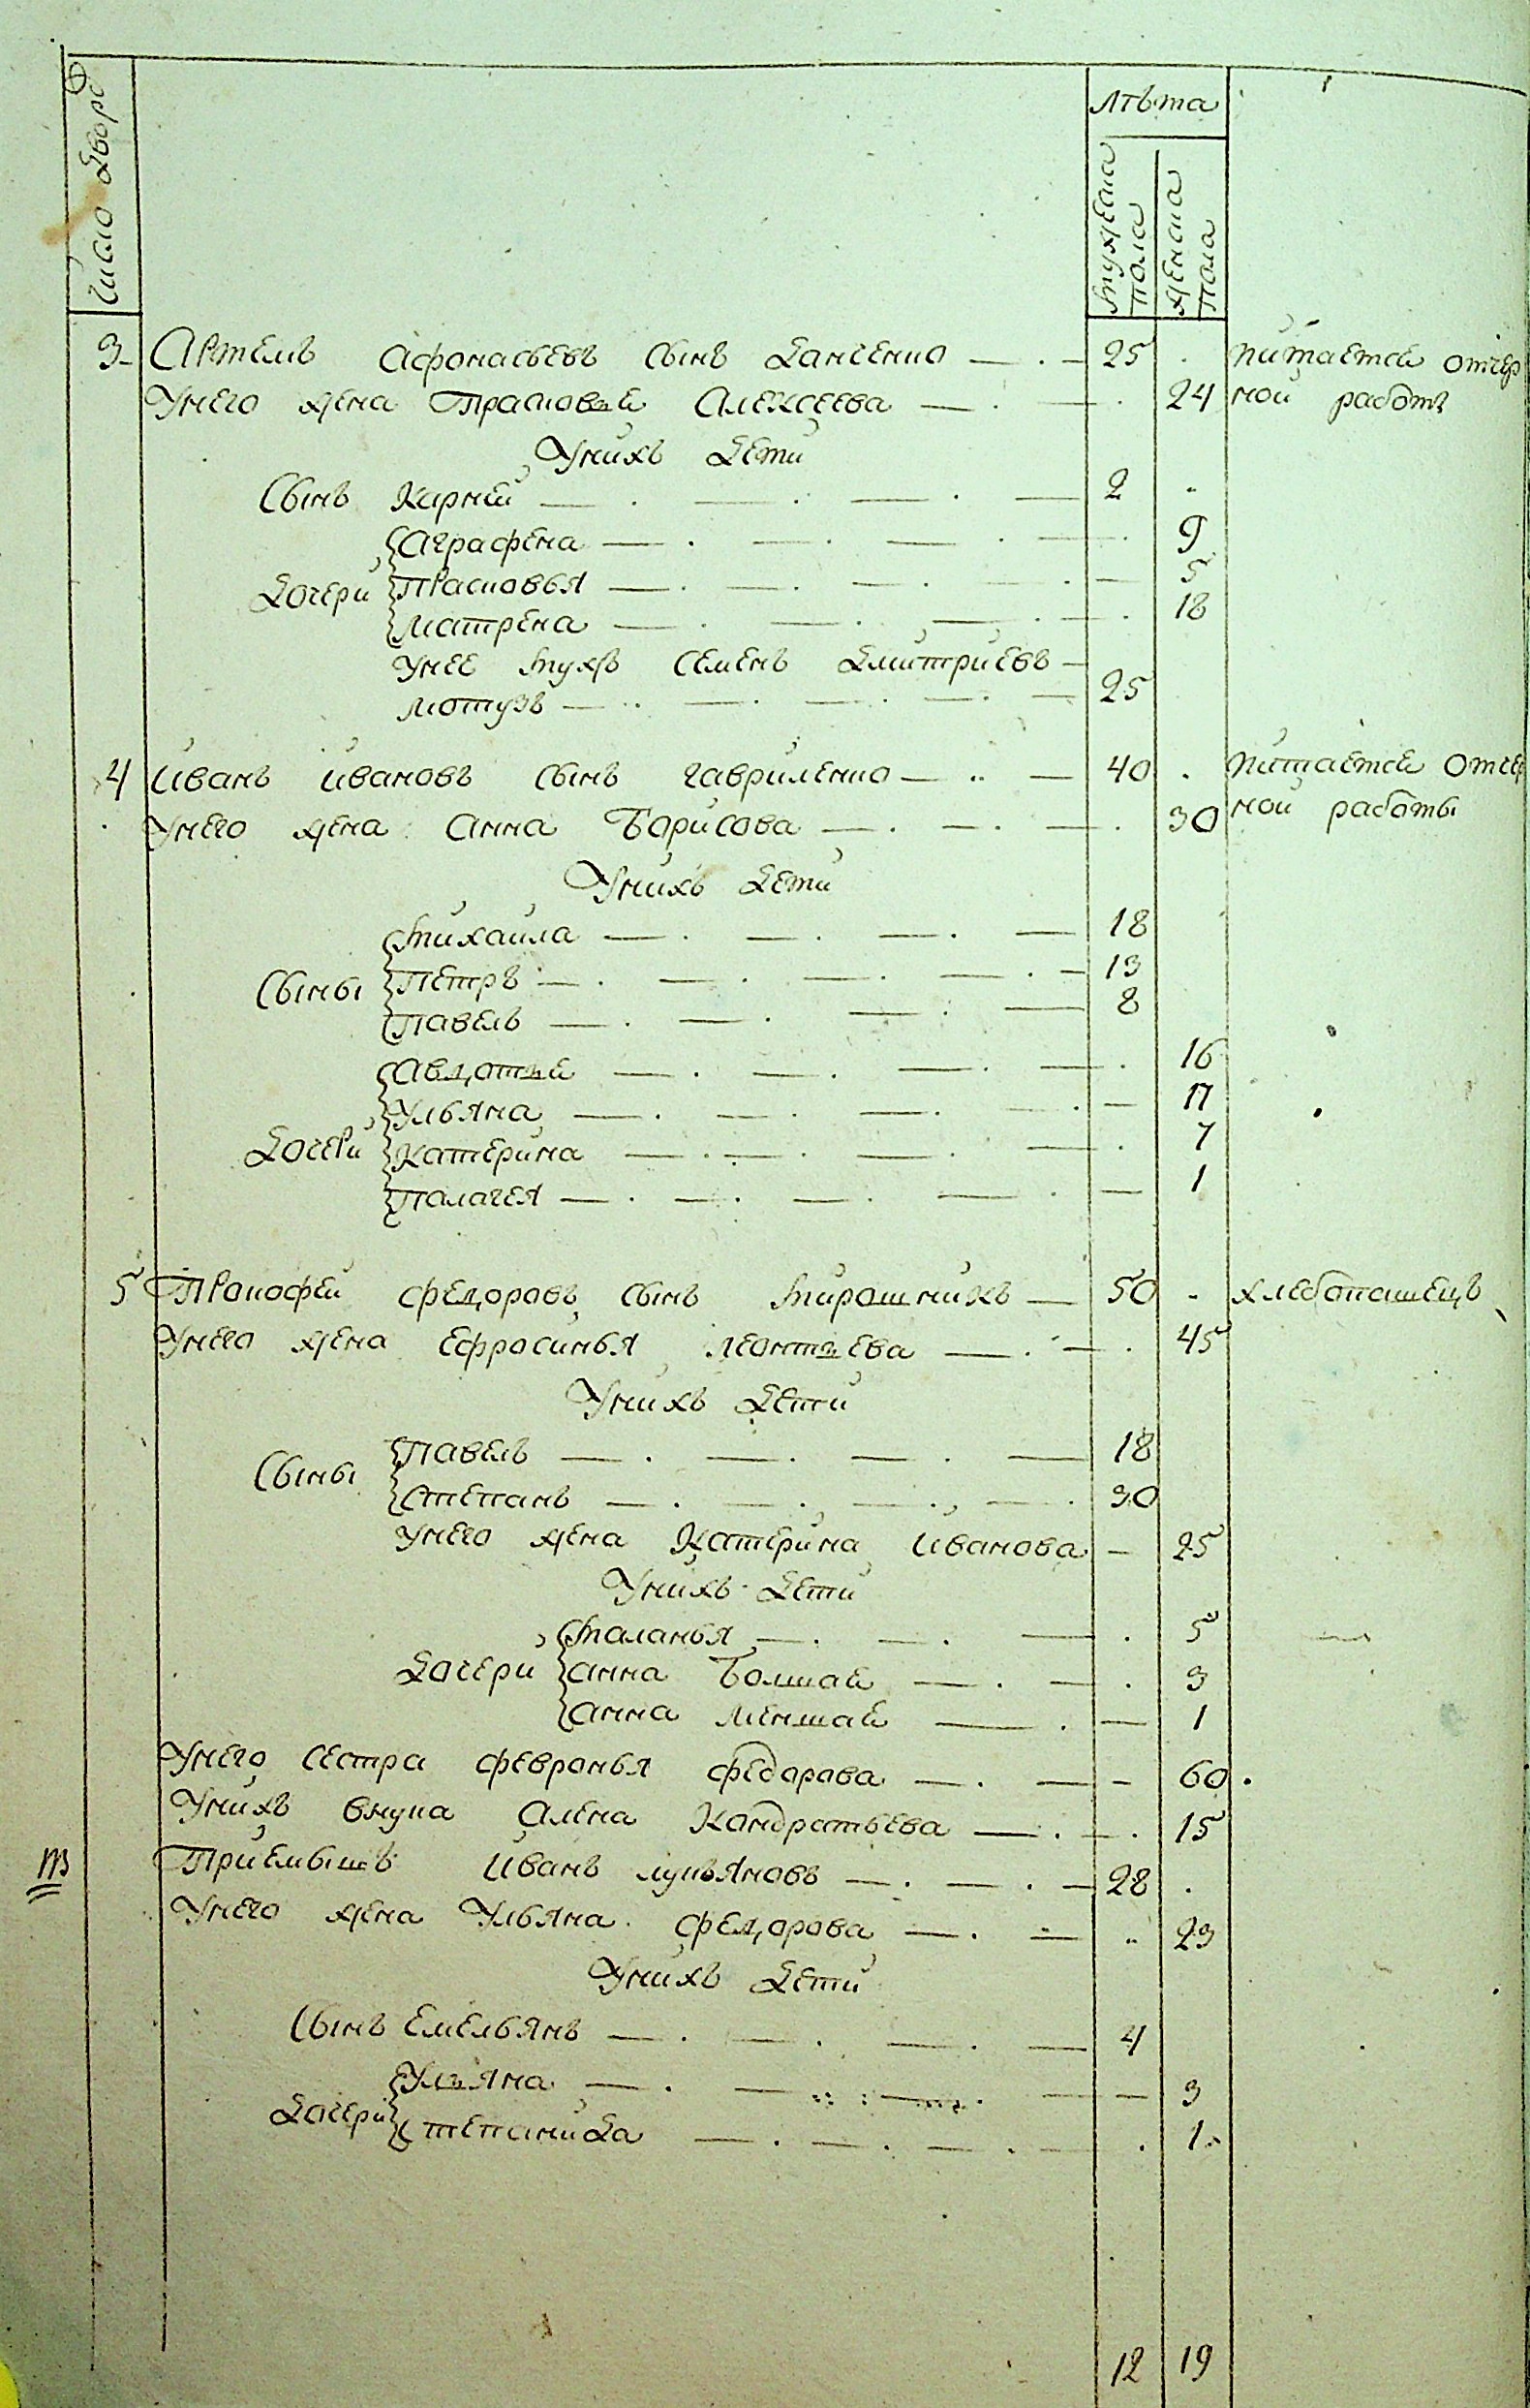 Число дворо
Лѣта
мужеска пола
женска пола
3 Артемъ Афонасьевъ сынъ Данченко 25 питается отчер
Унего жена Прасковья Алексеева 24 ной работъ
Унихъ дети
Сынъ Карней 2
Аграфена 9
Дочери Прасковья 5
Матрена 18
Унее мужъ Семенъ Дмитриевъ
Мотузъ 25
4 Иванъ Ивановъ сынъ Гавриленко 40 питается отчер
Унего жена Анна Борисова 30 ной работы
Унихъ дети
Михайла 18
Сыны Петръ 13
Павелъ 8
Авдотья 16
Ульяна 11
Дочери Катерина 7
Палагея 1
5 Прокофей Федоровъ сынъ Мирошникъ 50 хлебопашецъ
Унего жена Ефросинья Леонтьева 45
Унихъ дети
Сыны Павелъ 18
Степанъ 30
Унего жена Катерина Иванова 25
Унихъ дети
Маланья 5
Дочери Анна Болшая 3
Анна Меншая 1
Унего сестра Февронья Федорова 60
Унихъ внука Алена Кондратьева 15
Приемышъ Иванъ Лукьяновъ 28
Унего жена Ульяна Федорова 23
Унихъ дети
Сынъ Емельянъ 4
Ульяна 3
Дочери Степанида 1
12 19